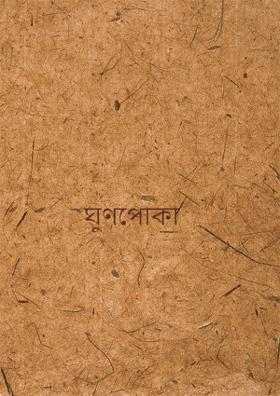 ঘুণপোকা